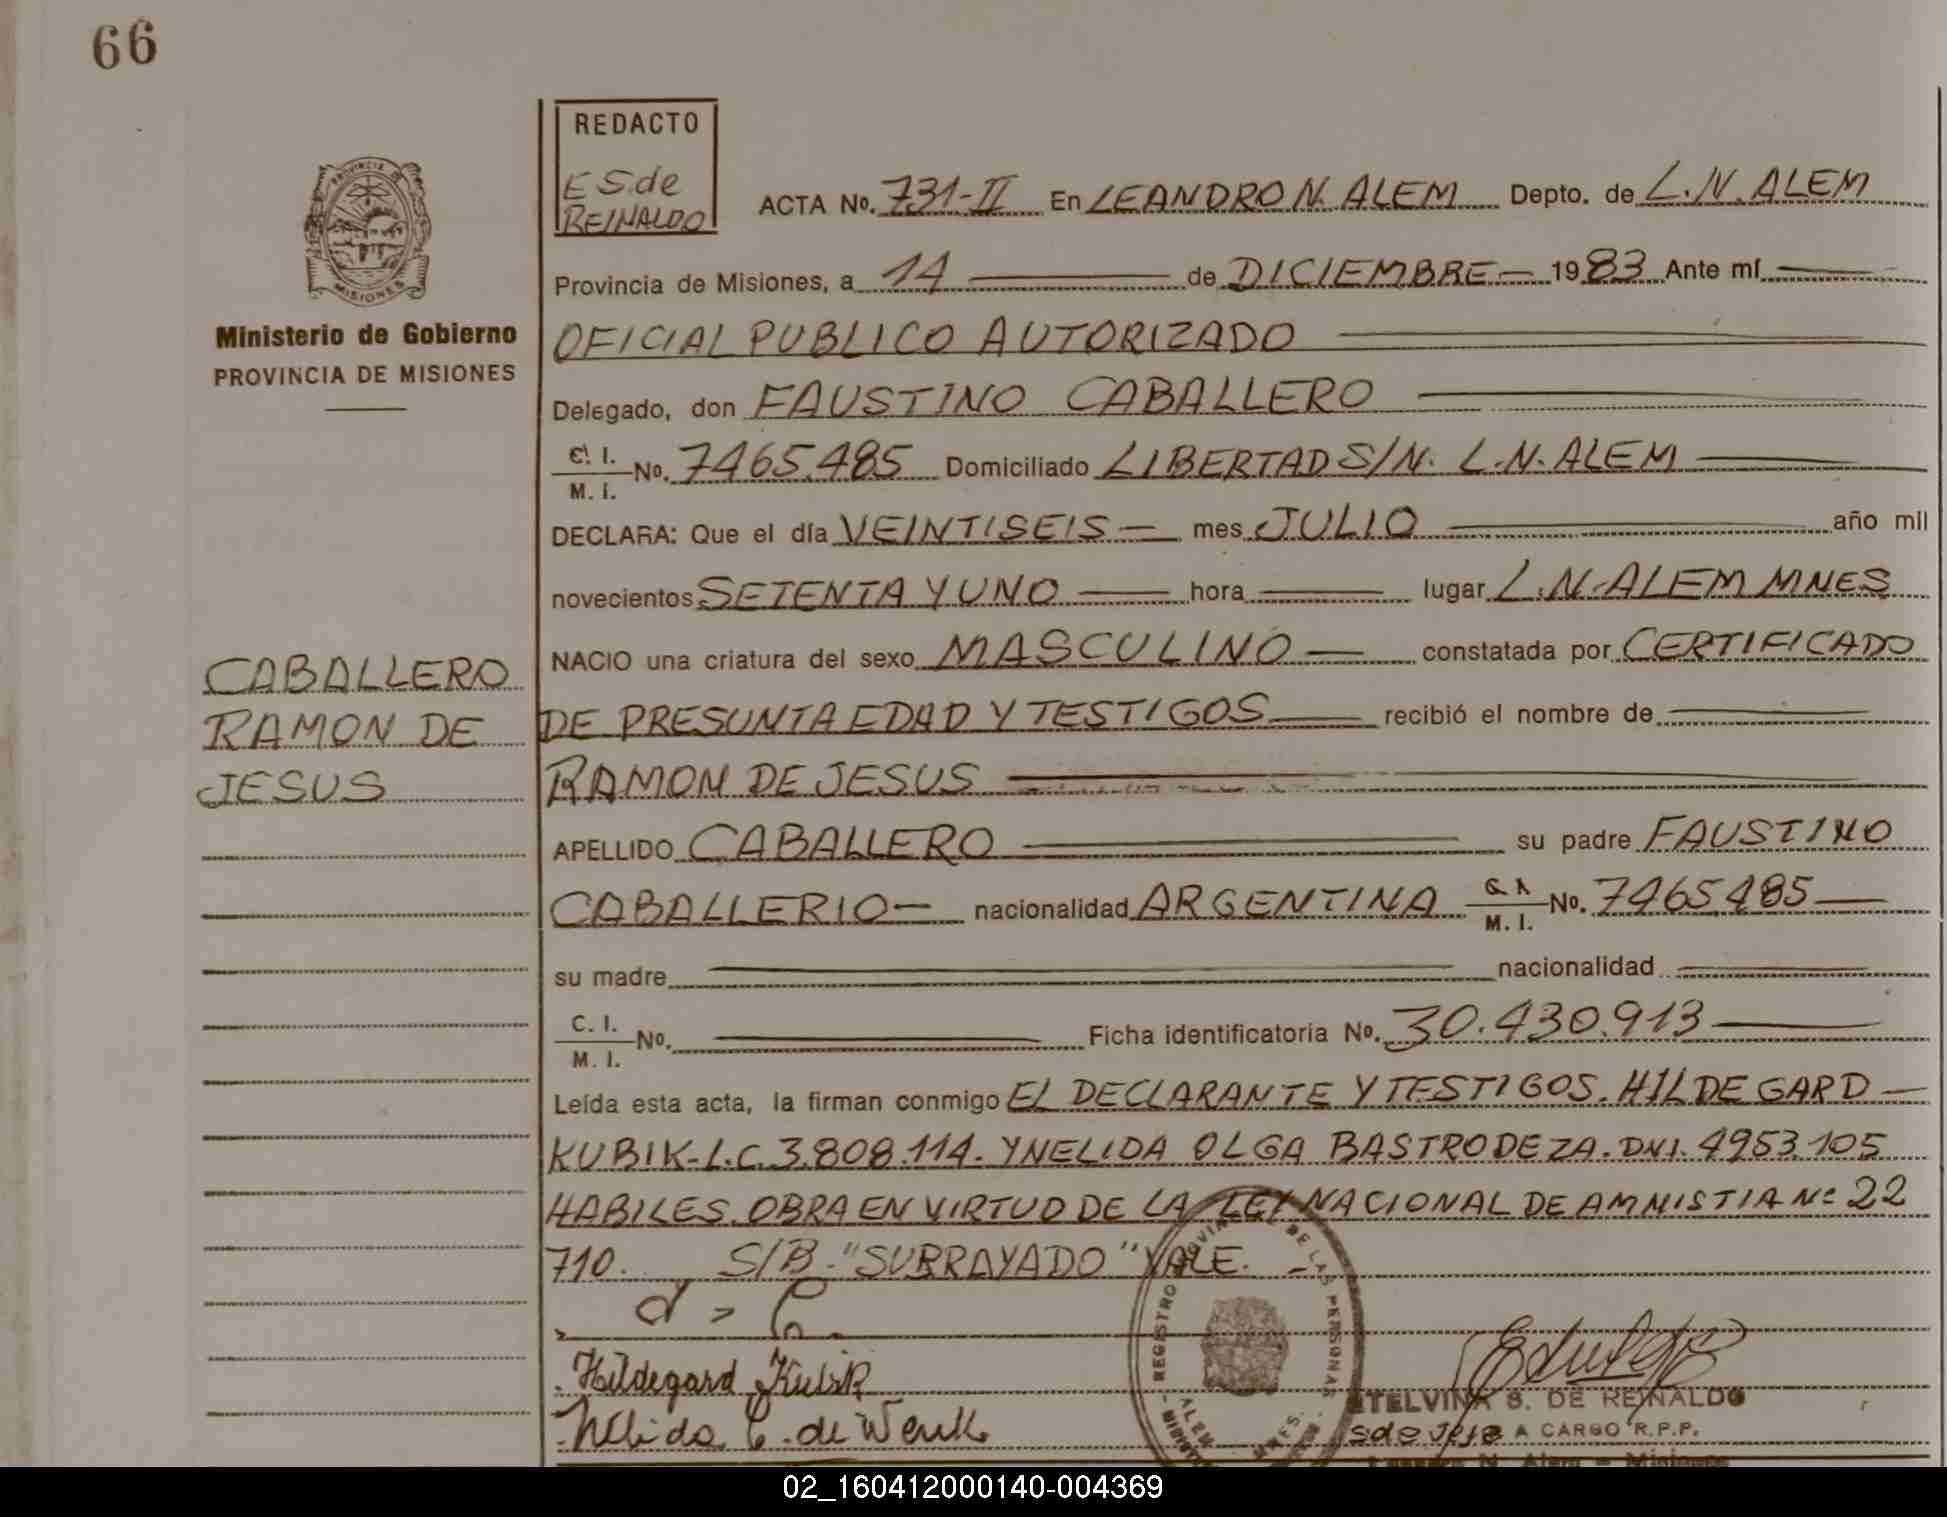 66
REDACTO
ES.de
REINALDO
PROVINCIA DE
MISIONES
Ministerio de Gobierno
PROVINCIA DE MISIONES
CABALLERO
RAMON DE
JESUS
ACTA No. 731-II En LEANDRO N. ALEM Depto. de L.N. ALEM
Provincia de Misiones, a 14 de DICIEMBRE 1983 Ante mí
OFICIAL PUBLICO AUTORIZADO
Delegado, don FAUSTINO CABALLERO
C. I. / M. I. No. 7465.485 Domiciliado LIBERTAD S/N. L.N. ALEM
DECLARA: Que el día VEINTISEIS mes JULIO año mil
novecientos SETENTA Y UNO hora lugar L.N-ALEM MNES
NACIO una criatura del sexo MASCULINO constatada por CERTIFICADO
DE PRESUNTA EDAD Y TESTIGOS recibió el nombre de
RAMON DE JESUS
APELLIDO CABALLERO su padre FAUSTINO
CABALLERIO nacionalidad ARGENTINA C. I. / M. I. No. 7465.485
su madre nacionalidad
C. I. / M. I. No. Ficha identificatoria No. 30.430.913
Leída esta acta, la firman conmigo EL DECLARANTE Y TESTIGOS. HILDEGARD
KUBIK-L.C. 3.808.114. Y NELIDA OLGA BASTRODEZA. DNI. 4953.105
HABILES. OBRA EN VIRTUD DE LA LEY NACIONAL DE AMNISTIA Nº 22
710. S/B-"SUBRAYADO" VALE.
Hildegard Kubik
Nelida C. de Wenk
REGISTRO PROVINCIAL DE LAS PERSONAS
ALEM
MNES.
ETELVINA S. DE REINALDO
A CARGO R.P.P.
Leandro N. Alem - Misiones
02_160412000140-004369